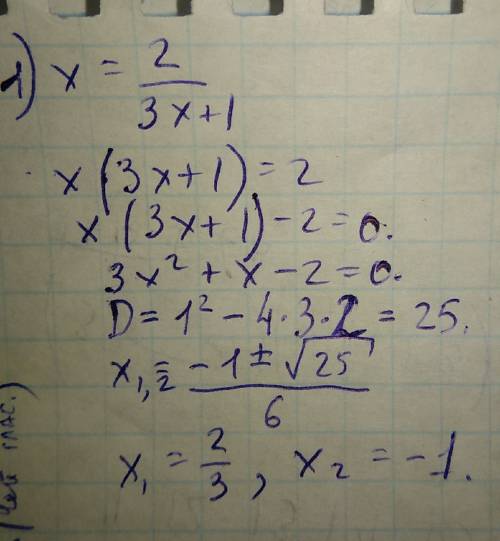 1) x = 2/(3x+1)
x(3x+1) = 2
x(3x+1) - 2 = 0.
3x² + x - 2 = 0.
D = 1² - 4·3·2 = 25.
x₁,₂ = (-1 ± √25)/6
x₁ = 2/3, x₂ = -1.